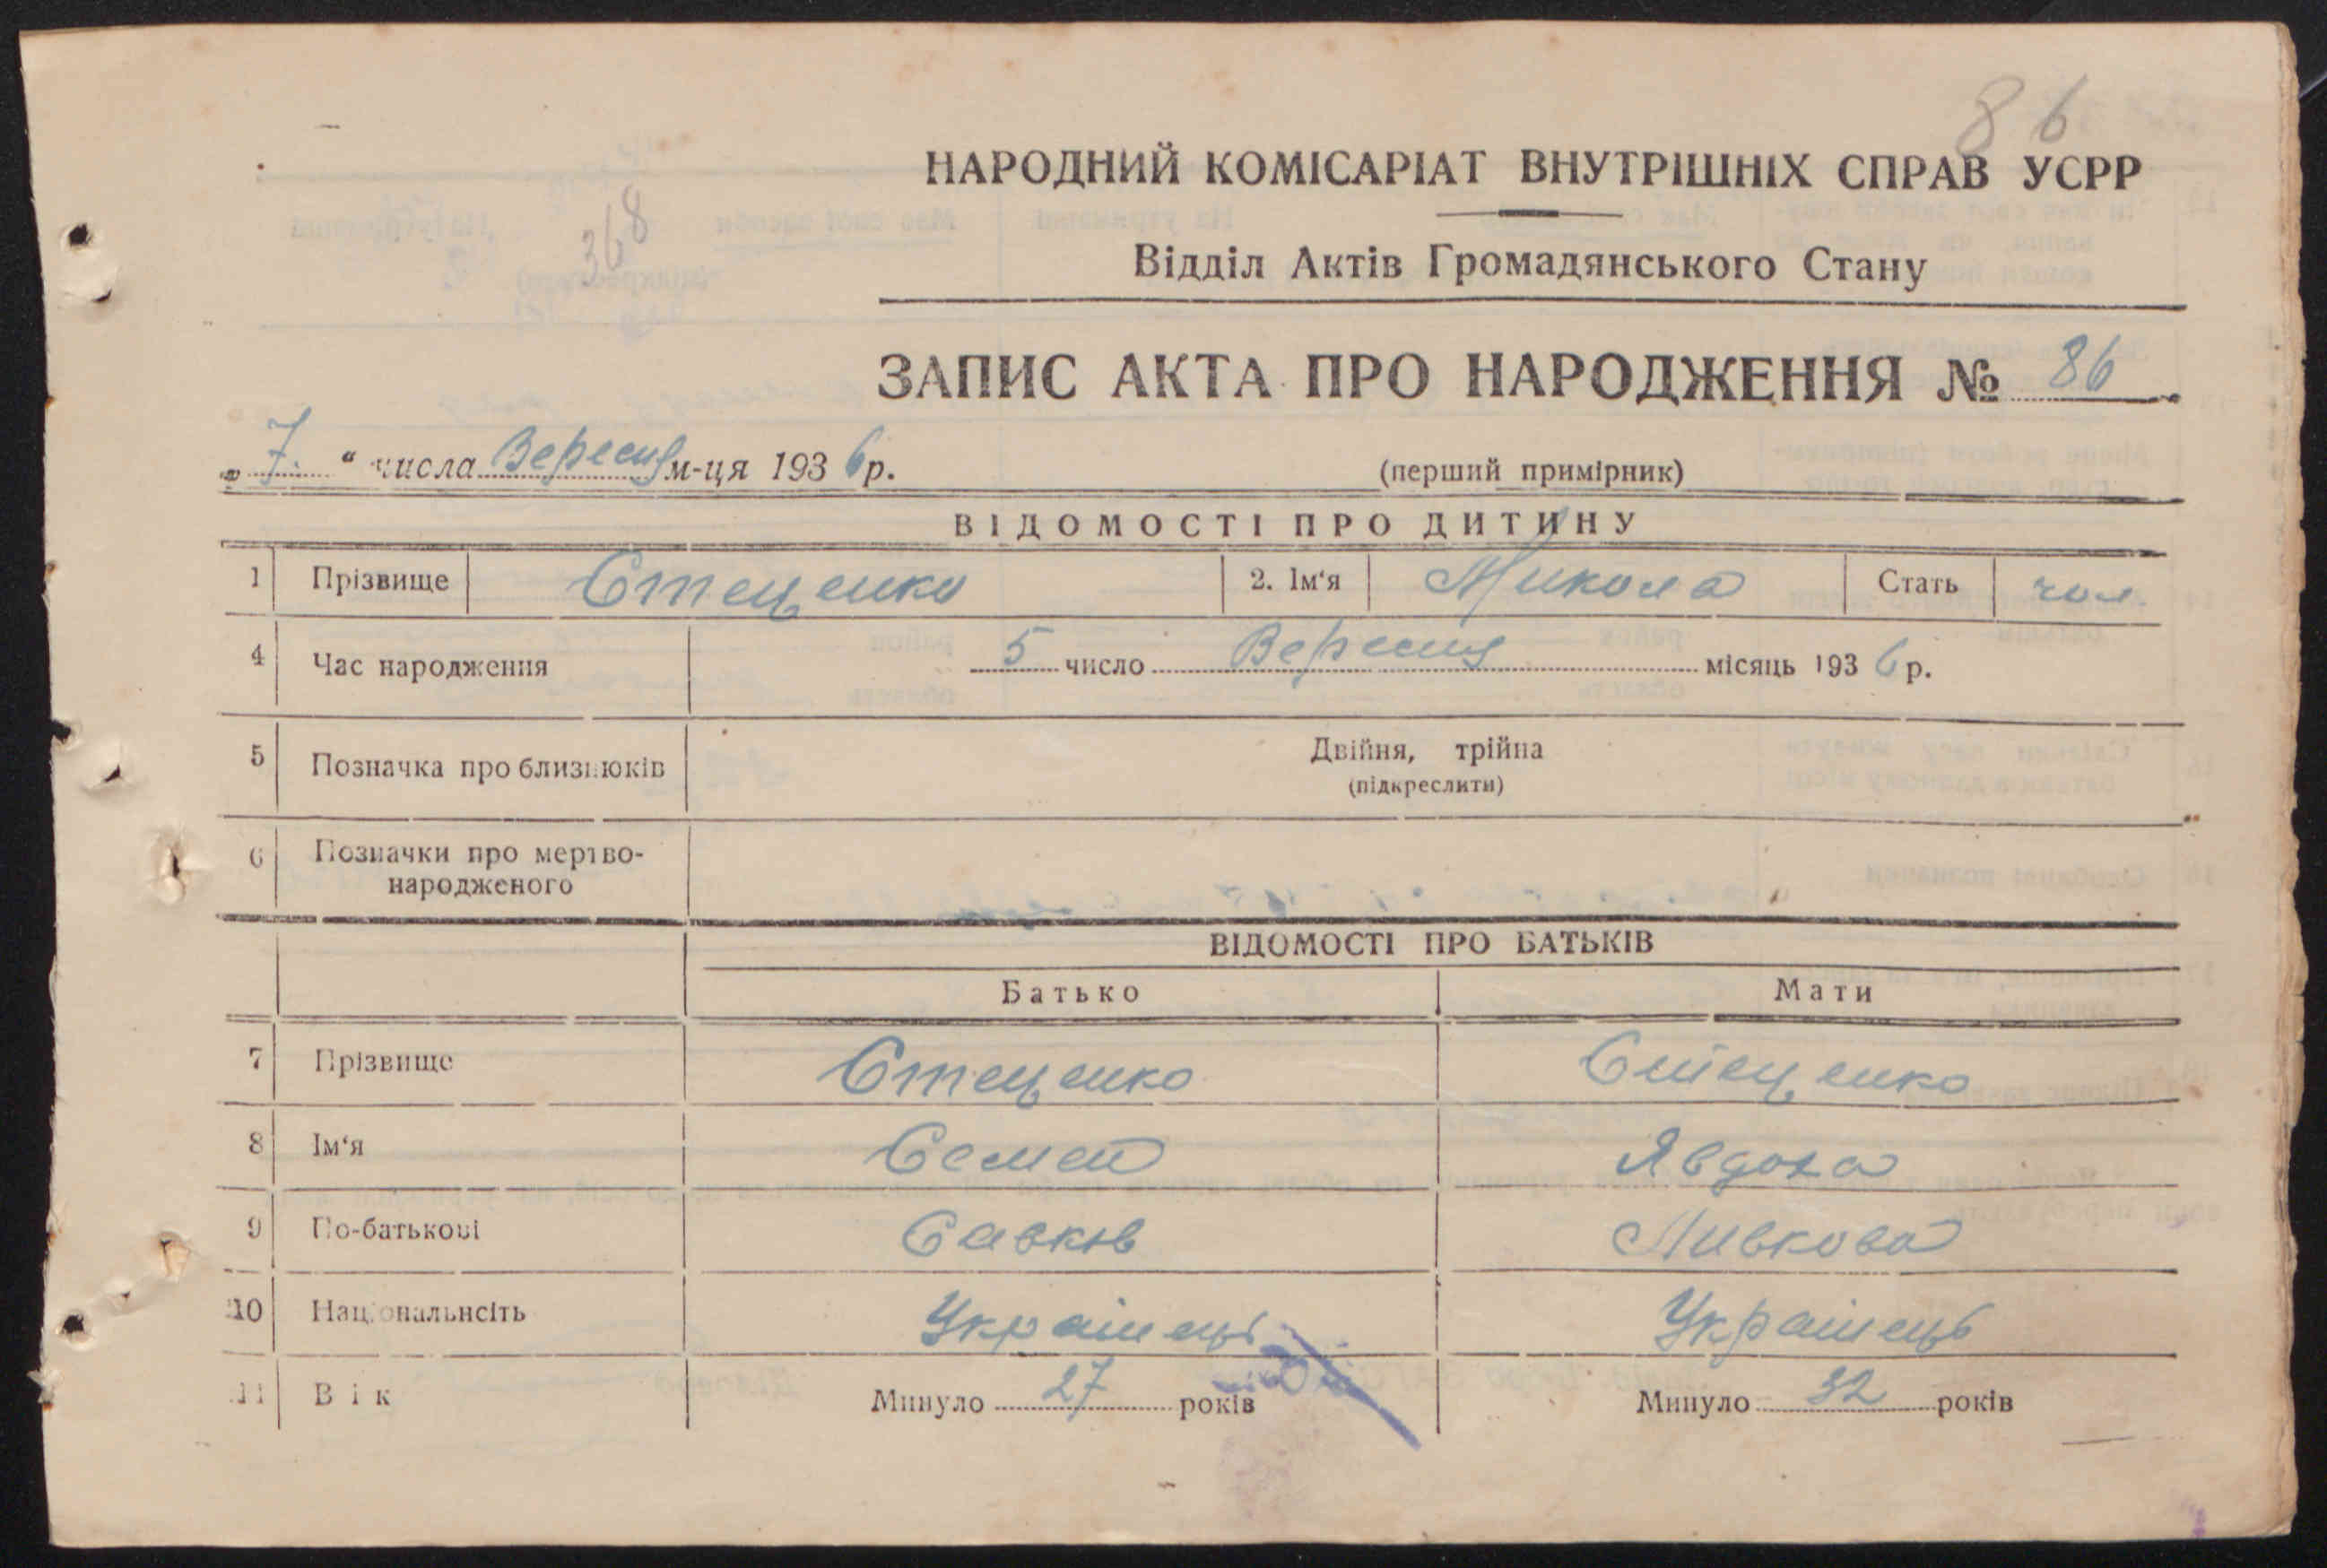 86
НАРОДНИЙ КОМІСАРІАТ ВНУТРІШНІХ СПРАВ УСРР
368
Відділ Актів Громадянського Стану
ЗАПИС АКТА ПРО НАРОДЖЕННЯ № 86
„ 7. “ числа Вересня м-ця 1936 р. (перший примірник)
ВІДОМОСТІ ПРО ДИТИНУ
1 Прізвище Стеценко 2. Ім‘я Микола Стать чол.
4 Час народження 5 число Вересня місяць 1936 р.
5 Позначка про близнюків Двійня, трійна
(підкреслити)
6 Позначки про мертво-
народженого
ВІДОМОСТІ ПРО БАТЬКІВ
Батько Мати
7 Прізвище Стеценко Стеценко
8 Ім‘я Семен Явдоха
9 По-батькові Савков
10 Національнсіть Українець Українець
11 Вік Минуло 27 років Минуло 32 років